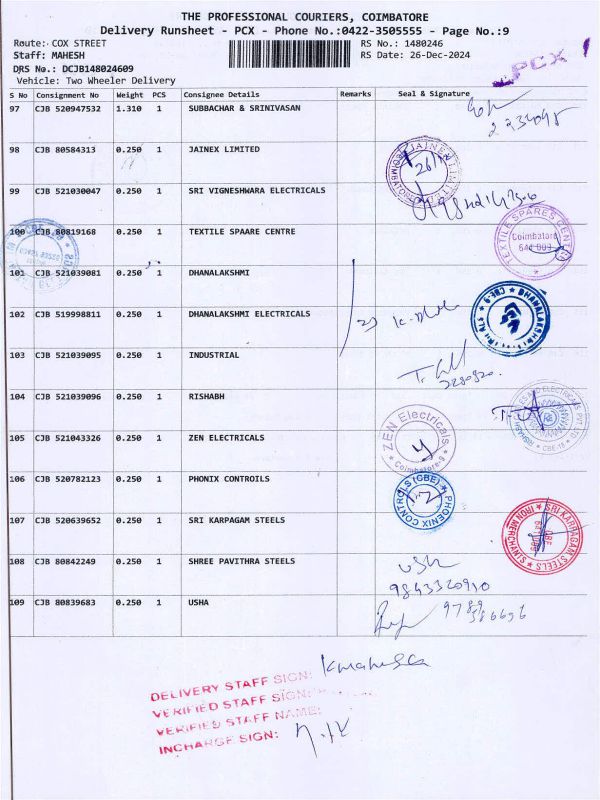 THE PROFESSIONAL COURIERS, COIMBATORE
Delivery Runsheet - PCX - Phone No.:0422-3505555 - Page No.:9
Route: COX STREET RS No.: 1480246
Staff: MAHESH RS Date: 26-Dec-2024
DRS No.: DCJB148024609
Vehicle: Two Wheeler Delivery
PCX
S No Consignment No Weight PCS Consignee Details Remarks Seal & Signature
97 CJB 520947532 1.310 1 SUBBACHAR & SRINIVASAN
98 CJB 80584313 0.250 1 JAINEX LIMITED
JAINEX LIMITED
26/12
99 CJB 521030047 0.250 1 SRI VIGNESHWARA ELECTRICALS
100 CJB 80819168 0.250 1 TEXTILE SPAARE CENTRE
TEXTILE SPARES CENTRE
Coimbatore
641 009
101 CJB 521039081 0.250 1 DHANALAKSHMI
102 CJB 519998811 0.250 1 DHANALAKSHMI ELECTRICALS
103 CJB 521039095 0.250 1 INDUSTRIAL
104 CJB 521039096 0.250 1 RISHABH
105 CJB 521043326 0.250 1 ZEN ELECTRICALS
ZEN Electricals
Coimbatore-9
106 CJB 520782123 0.250 1 PHONIX CONTROILS
PHOENIX CONTROLS (CBE)
107 CJB 520639652 0.250 1 SRI KARPAGAM STEELS
SRI KARPAGAM STEELS
IRON MERCHANTS
108 CJB 80842249 0.250 1 SHREE PAVITHRA STEELS
9843320910
109 CJB 80839683 0.250 1 USHA
9789
DELIVERY STAFF SIGN:
VERIFIED STAFF SIGN:
VERIFIED STAFF NAME:
INCHARGE SIGN: